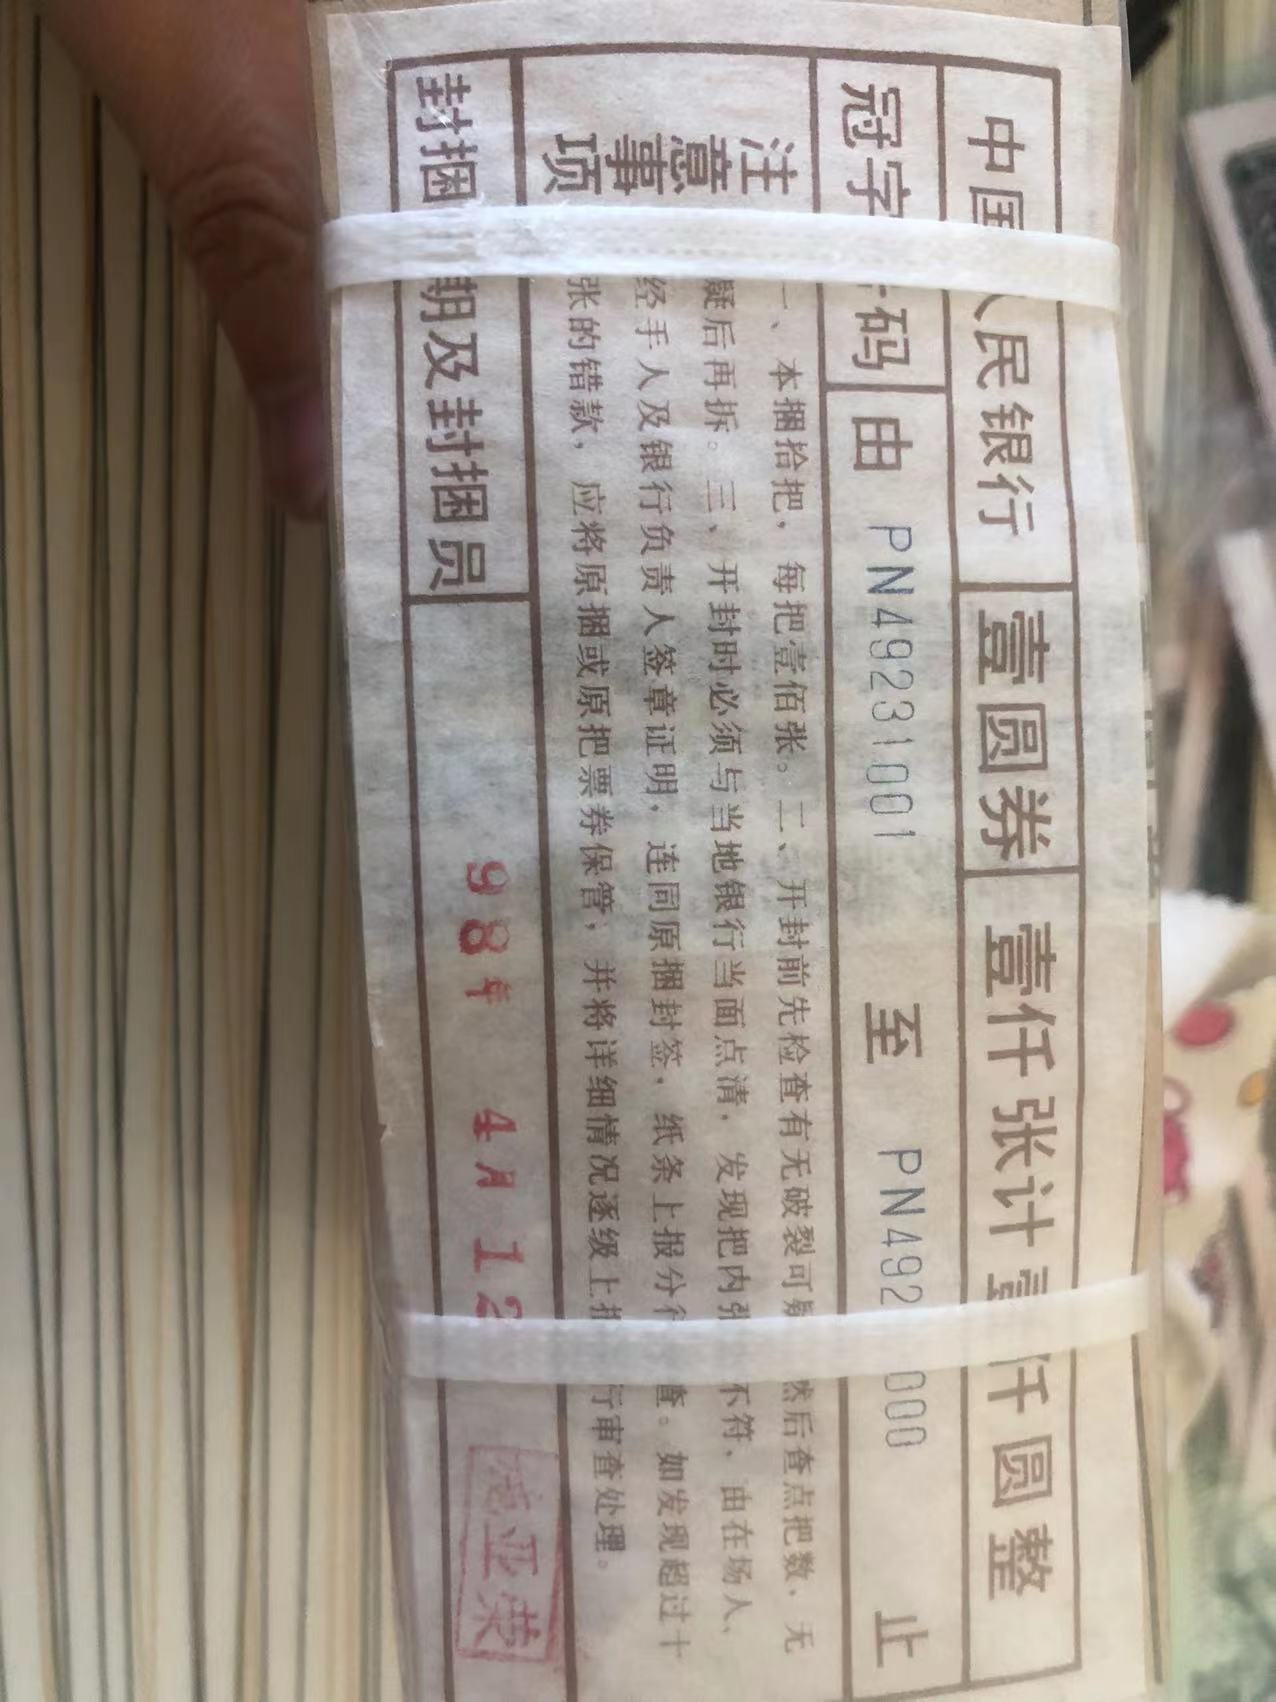 中国人民银行 壹圆券 壹仟张计 仟圆整
冠字 码 由 PN49231001 至 PN492 000 止
注意事项
一、本捆拾把，每把壹佰张。二、开封前先检查有无破裂可疑 然后查点把数、无
疑后再拆。三、开封时必须与当地银行当面点清，发现把内张 不符、由在场人、
经手人及银行负责人签章证明，连同原捆封签，纸条上报分行 查。如发现超过十
张的错款，应将原捆或原把票券保管，并将详细情况逐级上报 行审查处理。
封捆 期及封捆员 98年 4月 12
亚荣